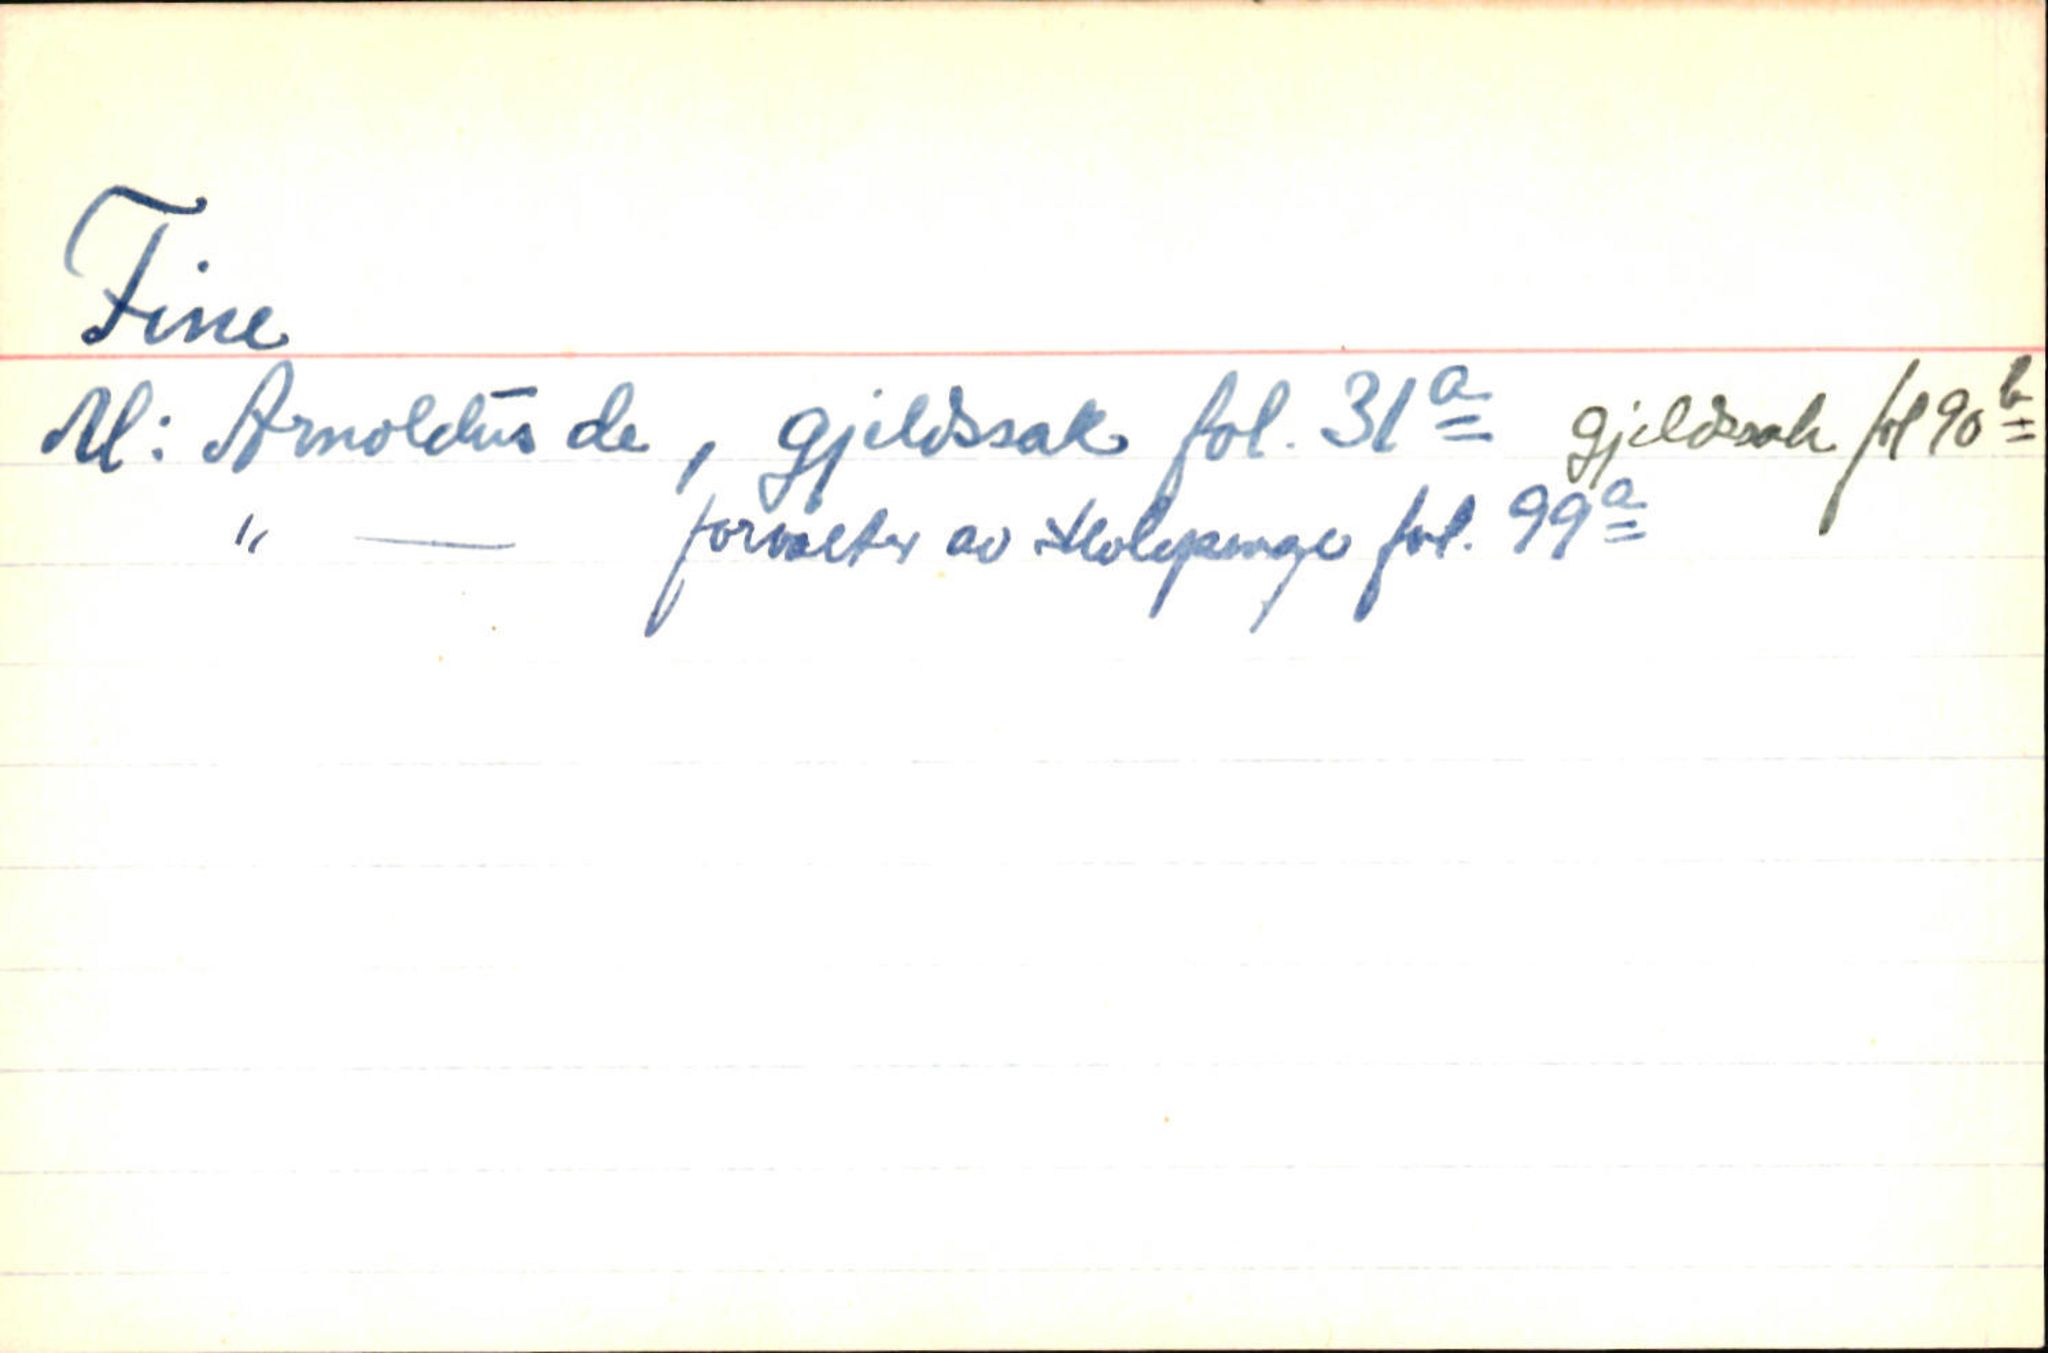 Fine
M: Arnoldus de, gjeldssak fol. 31a gjeldssak fol 90b
" — forvalter av Skolepenge fol. 99a